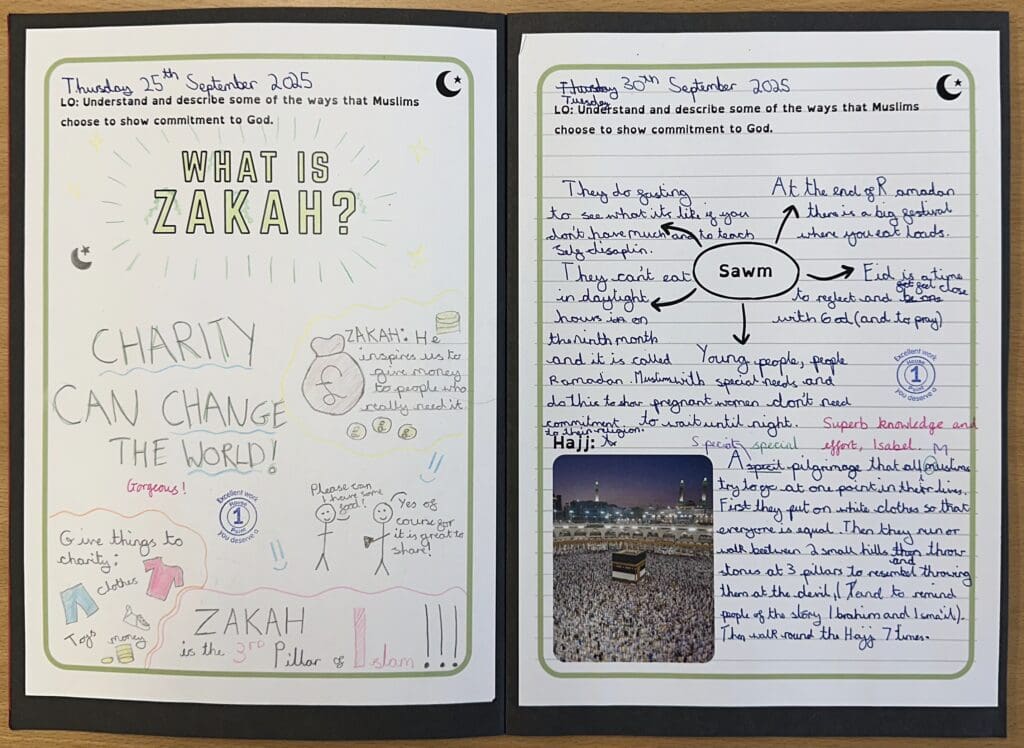 Thursday 25th September 2025
LO: Understand and describe some of the ways that Muslims
choose to show commitment to God.
WHAT IS
ZAKAH?
CHARITY
CAN CHANGE
THE WORLD!
Gorgeous!
ZAKAH: He
inspires us to
give money
to people who
really need it
£
£ £ £
Excellent work
House
1
Point
you deserve a
Please can
I have some
food?
Yes of
course for
it is great to
share!
Give things to
charity:
clothes
Toys
money
ZAKAH
is the 3rd Pillar of Islam !!!
Thursday 30th September 2025
Tuesday
LO: Understand and describe some of the ways that Muslims
choose to show commitment to God.
They do fasting
to see what its like if you
don't have much and to teach
Self disaplin.
At the end of Ramadan
there is a big festival
where you eat loads.
Sawm
They can't eat
in daylight
hours in on
the ninth month
and it is called
Ramadan. Muslims
do this to show
commitment
to their religion.
Eid is a time
to reflect and feel close
with God (and to pray)
Young people, people
with special needs and
pregnant women don't need
to wait until night.
Excellent work
House
1
Point
you deserve a
Superb knowledge and
effort, Isabel.
Hajj:
special special
M
A specit pilgrimage that all muslims
try to go at one point in their lives.
First they put on white clothes so that
everyone is equal. Then they run or
walk beetween 2 small hills then throw
and
stones at 3 pillars to resembel throwing
them at the devil, (and to remind
people of the story Ibrahim and Isma'il).
They walk round the Hajj 7 times.